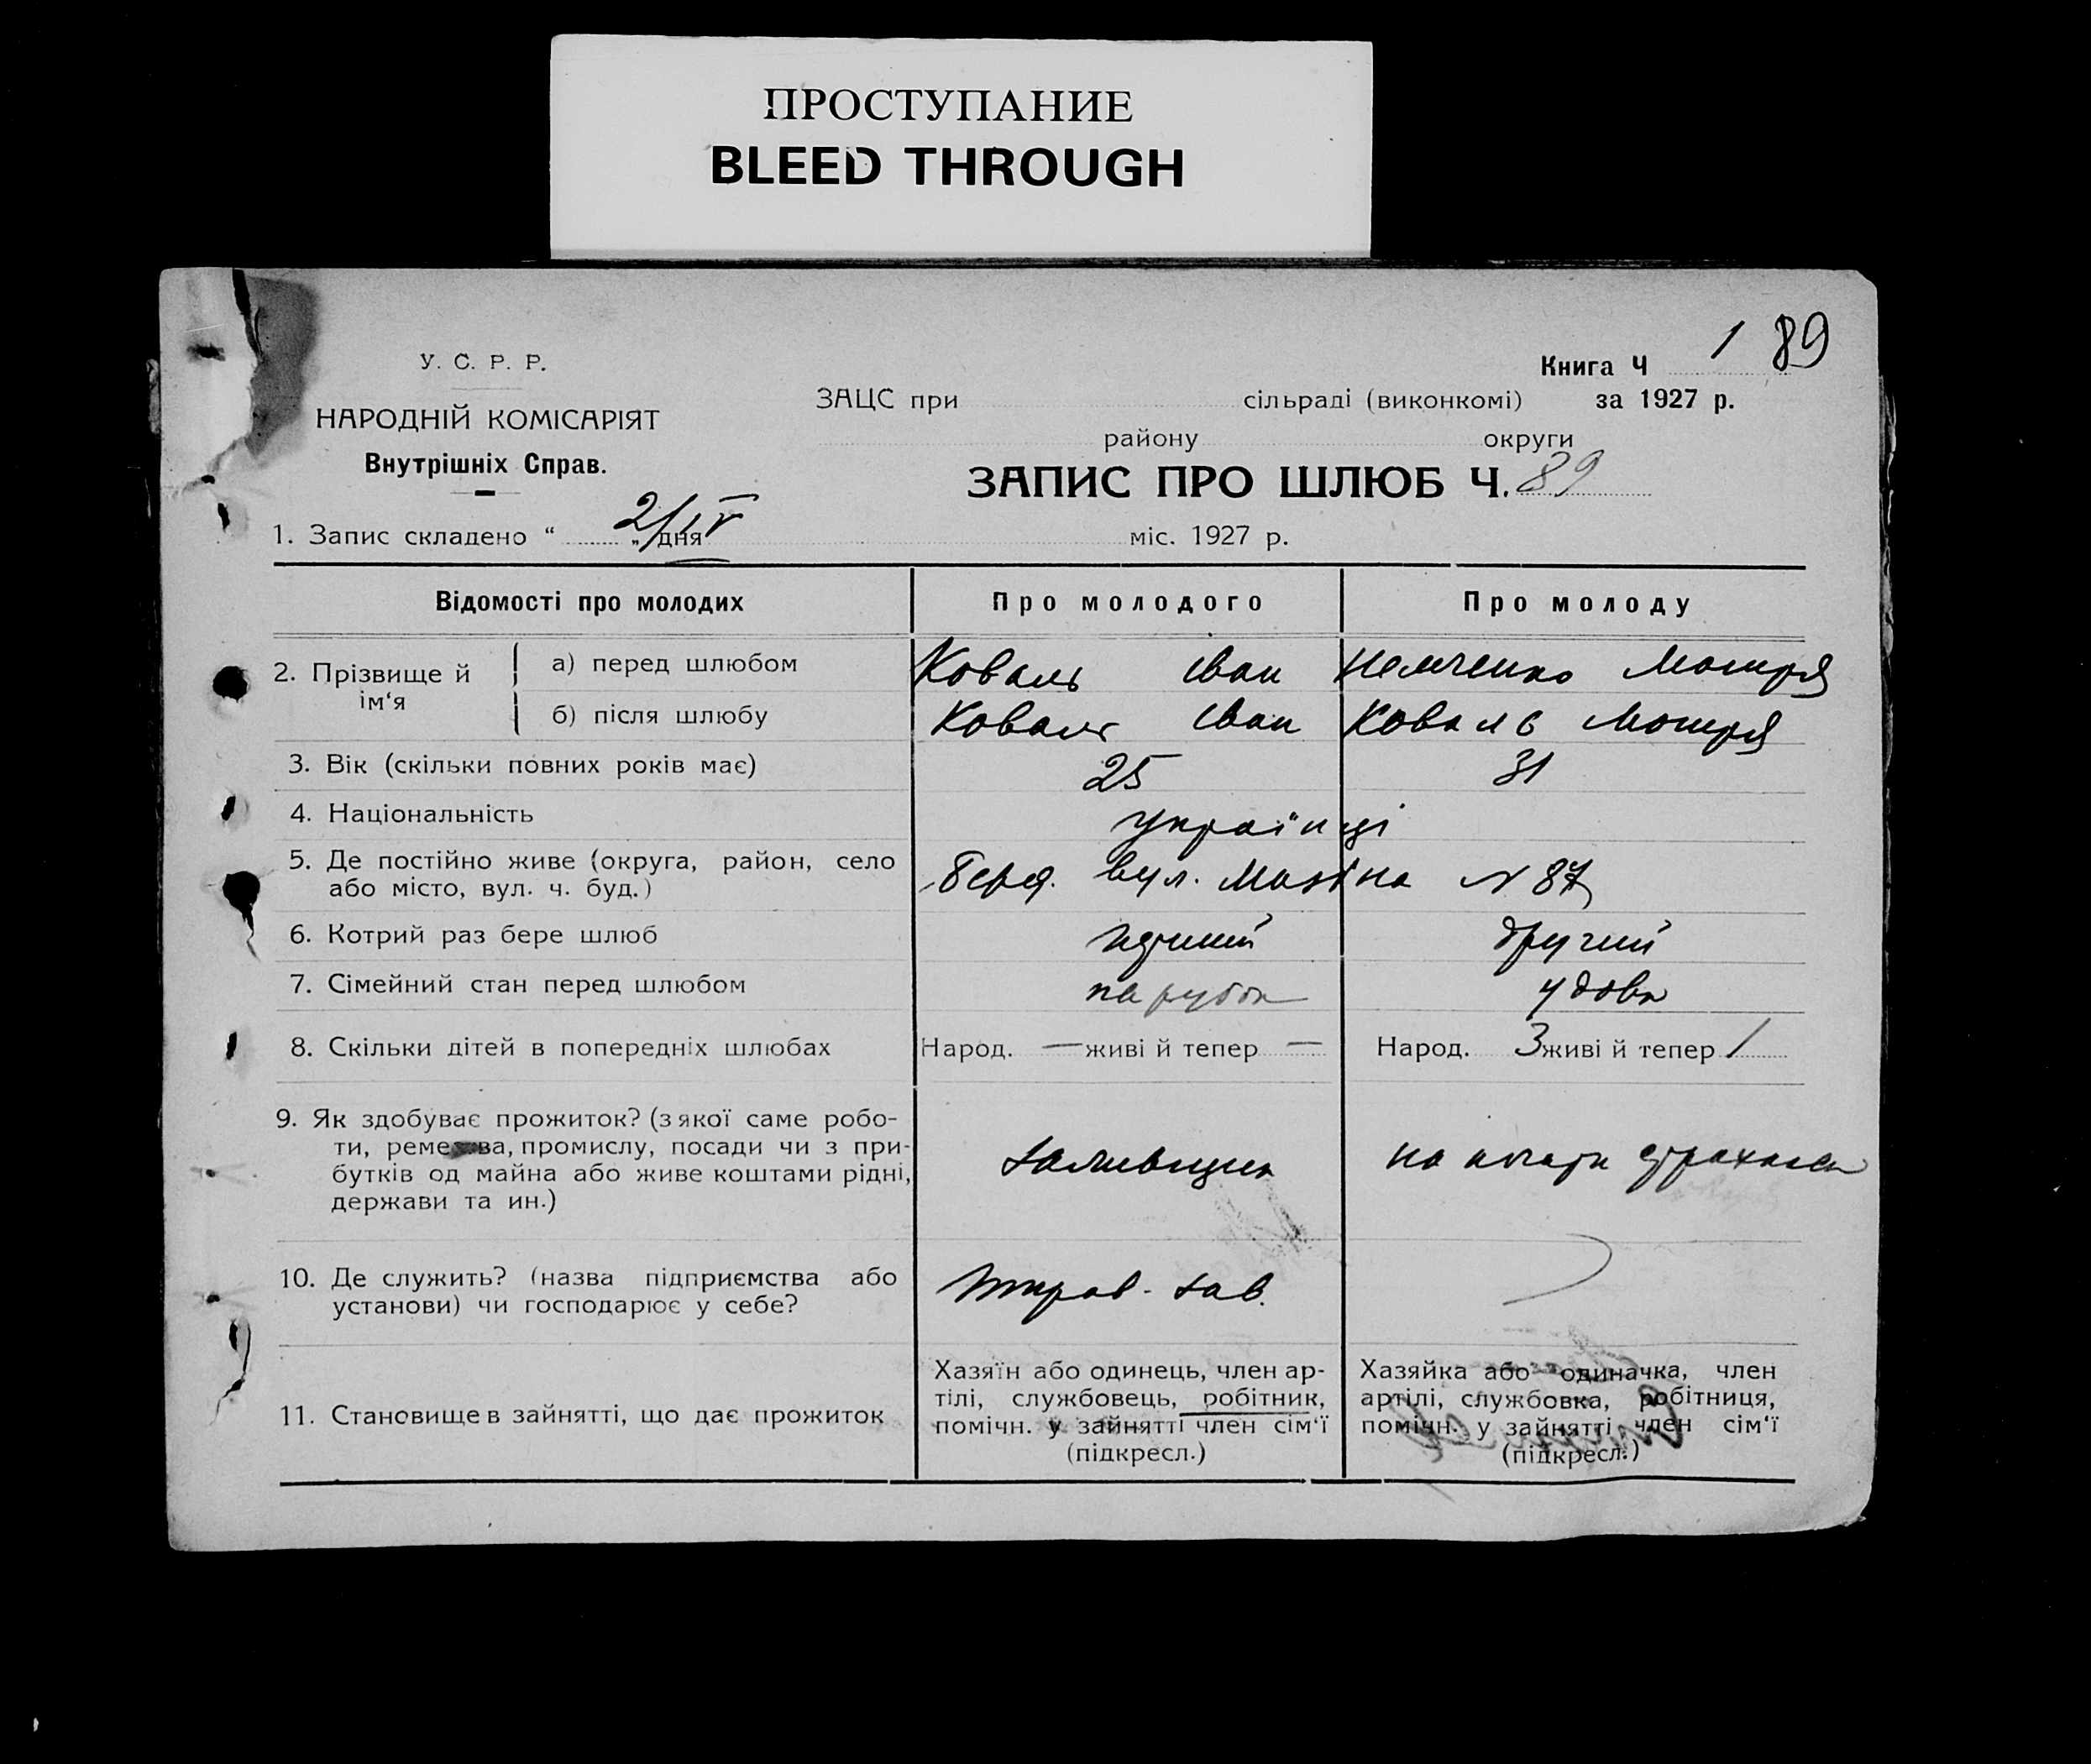 ПРОСТУПАНИЕ
BLEED THROUGH
У. С. Р. Р.
НАРОДНІЙ КОМІСАРІЯТ
Внутрішніх Справ.
Книга Ч 1 89
ЗАЦС при сільраді (виконкомі) за 1927 р.
району округи
ЗАПИС ПРО ШЛЮБ Ч. 89
1. Запис складено “ „ дня 2/IV міс. 1927 р.
Відомості про молодих Про молодого Про молоду
2. Прізвище й ім‘я
а) перед шлюбом Коваль Іван Немченко Мотря
б) після шлюбу Коваль Іван Коваль Мотря
3. Вік (скільки повних років має) 25 31
4. Національність українці
5. Де постійно живе (округа, район, село Берд. вул. N 87
або місто, вул. ч. буд.)
6. Котрий раз бере шлюб перший другий
7. Сімейний стан перед шлюбом парубок удова
8. Скільки дітей в попередніх шлюбах Народ. — живі й тепер — Народ. 3 живі й тепер 1
9. Як здобуває прожиток? (з якої саме робо-
ти, ремества, промислу, посади чи з при-
бутків од майна або живе коштами рідні,
держави та ин.)
заливщик
10. Де служить? (назва підприємства або
установи) чи господарює у себе?
зав.
11. Становище в зайнятті, що дає прожиток
Хазяїн або одинець, член ар-
тілі, службовець, робітник,
помічн. у зайнятті член сім‘ї
(підкресл.)
Хазяйка або одиначка, член
артілі, службовка, робітниця,
помічн. у зайнятті член сім‘ї
(підкресл.)